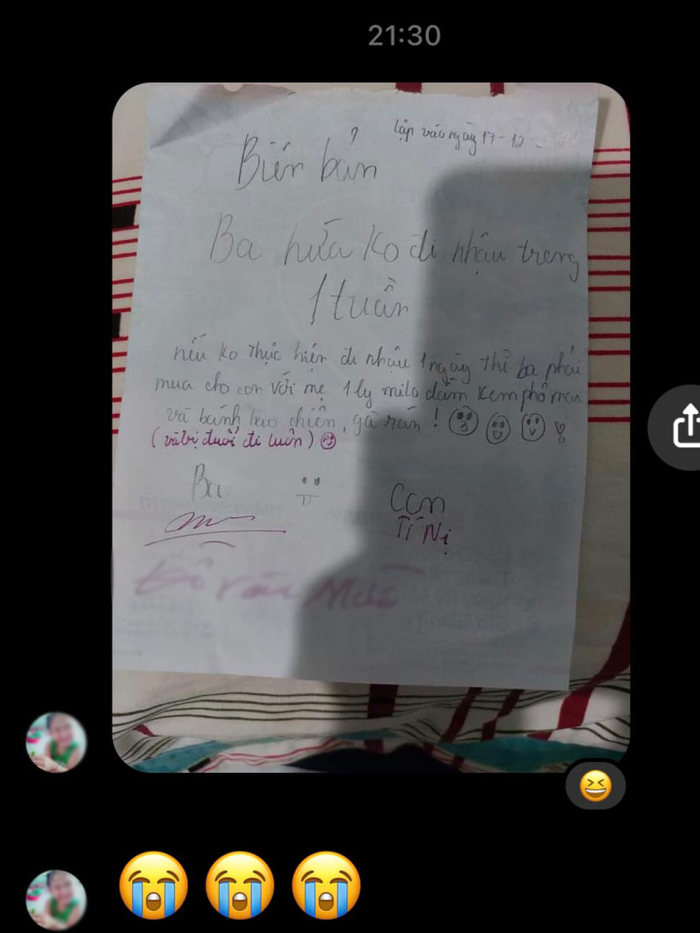 21:30
lập vào ngày 17-12-
Biên bản
Ba hứa ko đi nhậu trong
1 tuần
nếu ko thực hiện đi nhậu 1 ngày thì ba phải
mua cho con với mẹ 1 ly milo dầm kem phô mai
và bánh bao chiên, gà rán!
(và bị đuổi đi luôn)
Ba
Con
Tí Nị